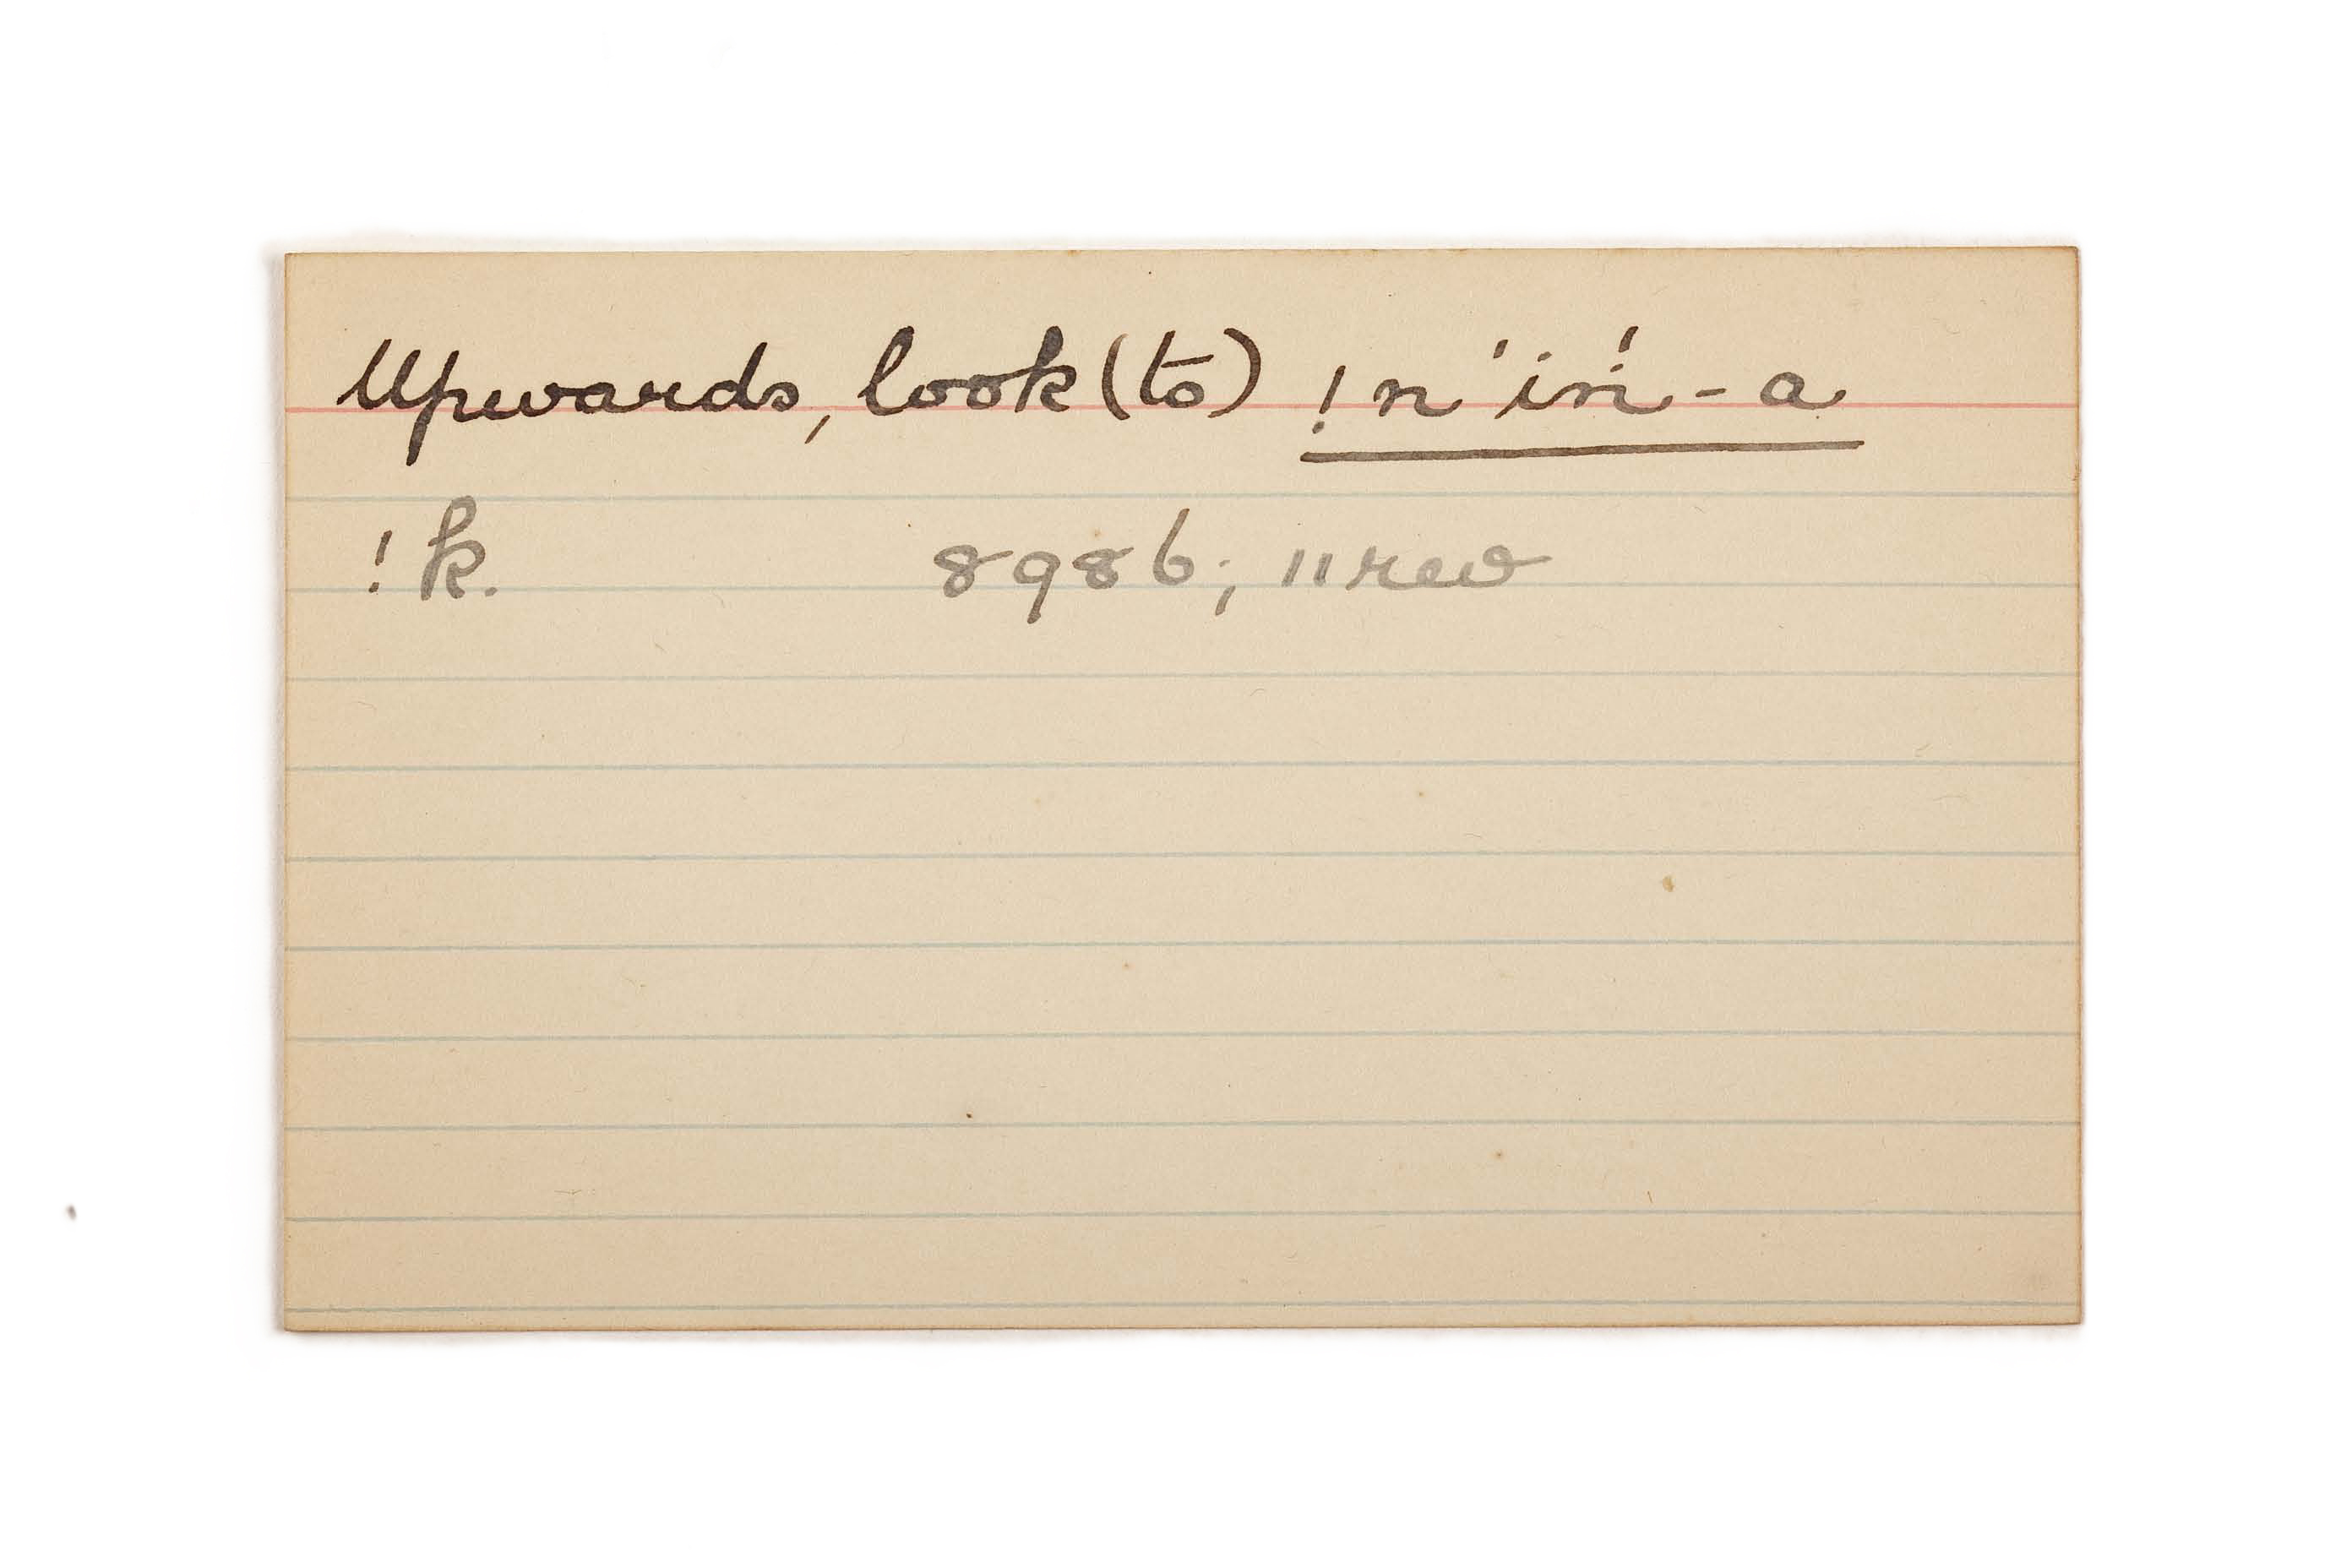 Upwards, look (to) !n'iń-a
!k. 8986; 11 rev